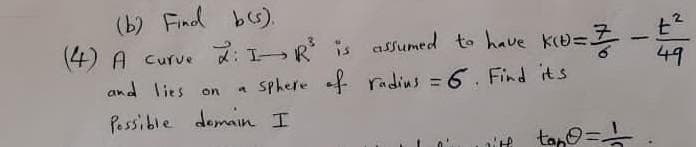 (b) Find b(s).
(4) A curve α⃗: I → R³ is assumed to have K(t) = 7/6 − t²/49
and lies on a sphere of radius = 6. Find its
Possible domain I
tanθ = 1